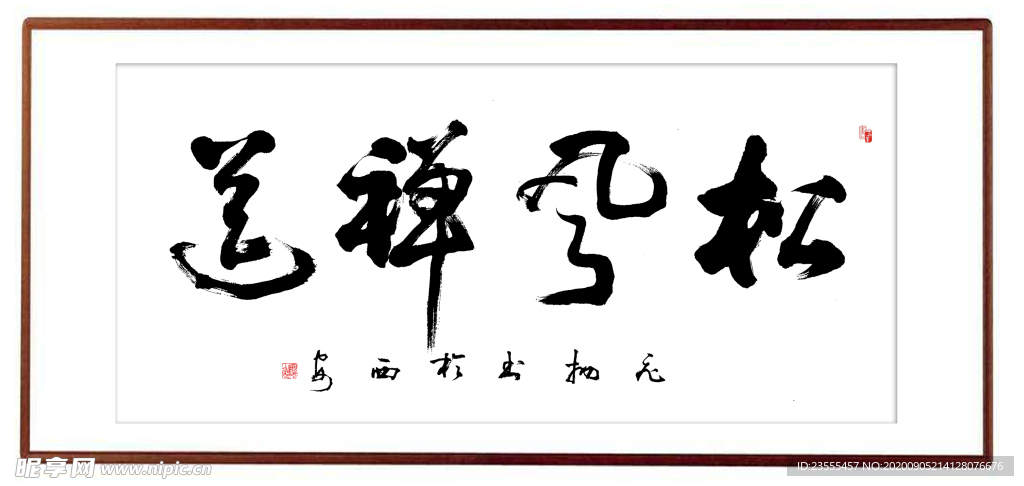 松风禅道
书於西安
昵享网 www.nipic.cn
ID:23555457 NO:20200905214128076676